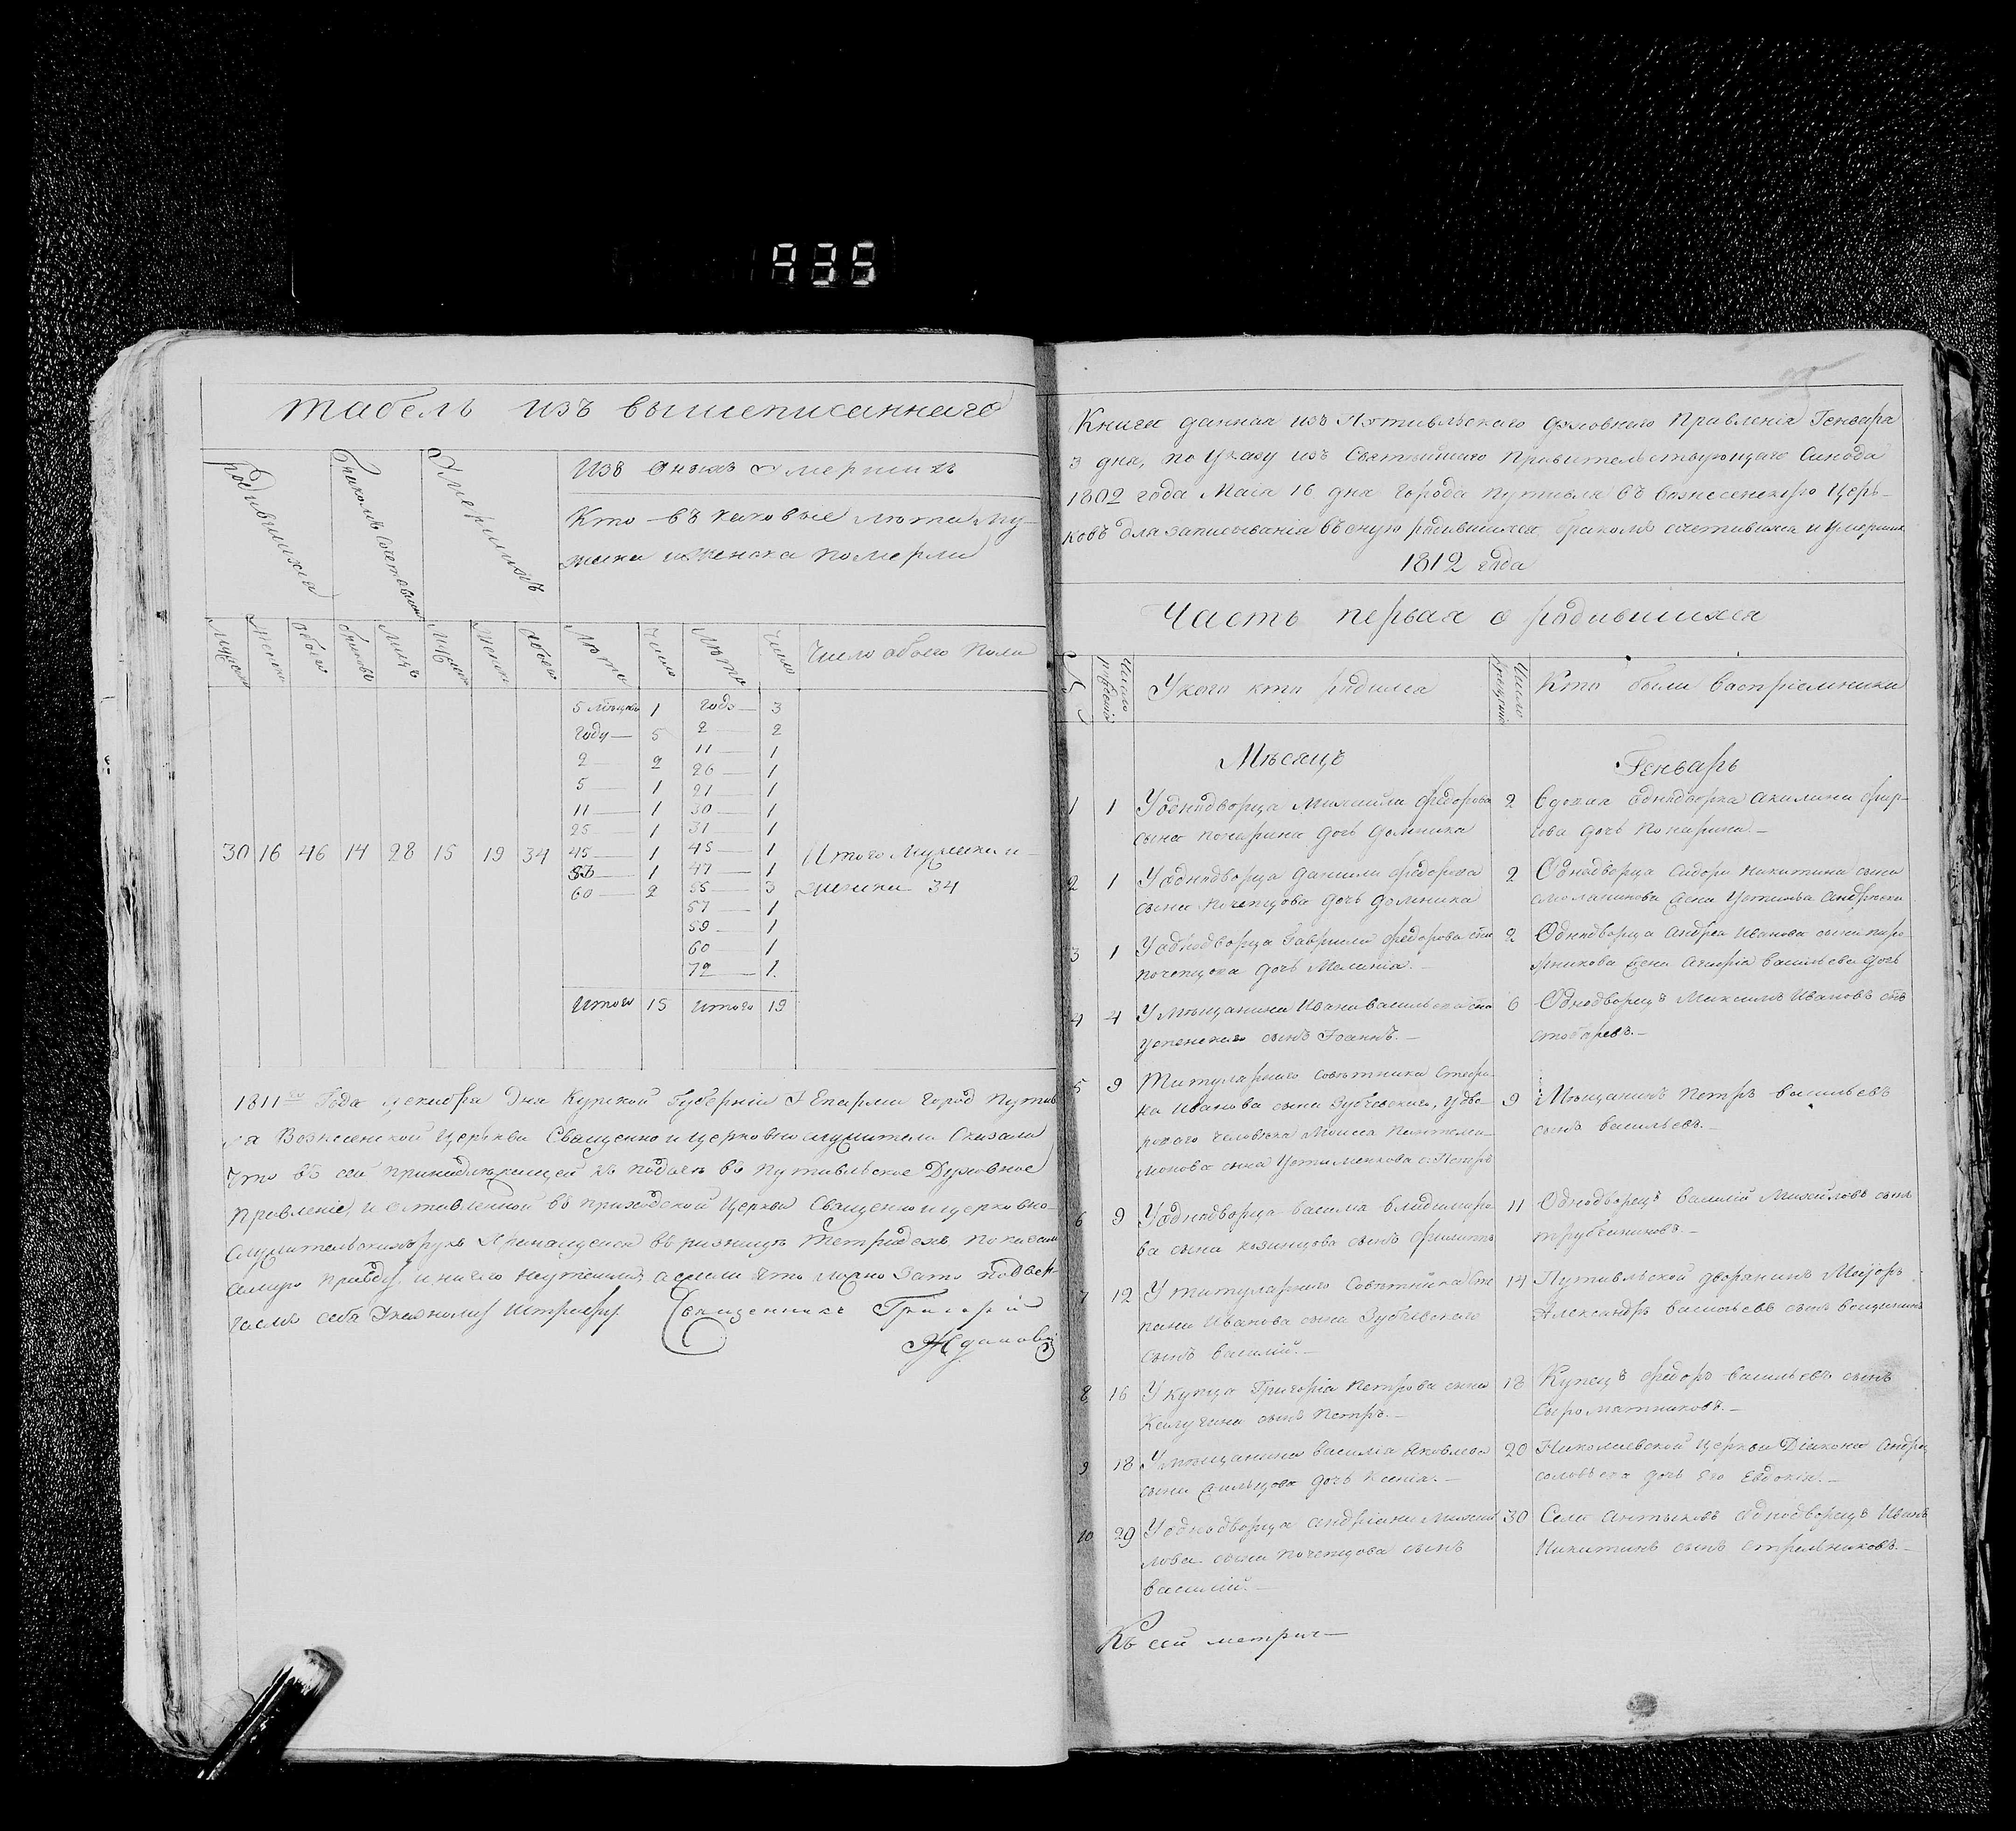 935
табель изъ вышеписаннаго
родившихся
бракомъ сочетавших
Умершихъ
Изъ Оныхъ Умершихъ
Кто въ каковые лѣта му-
жска и женска померли
Мужеск
Женска
Обоего
браковъ
Лицъ
Мужск
Женск
Обоего
Лѣта
Число
Лѣта
Число
Число обоего пола
5 мѣсецов 1 годъ 3
году 5 2 2
2 2 11 1
5 1 26 1
11 1 21 1
25 1 30 1
31 1
30 16 46 14 28 15 19 34
45 1 45 1
1 47 1
60 2 55 3
57 1
59 1
60 1
72 1
Итого Мужска и
женска 34
Итого 15 Итого 19
1811го Года декабря Дня Курской Губерніи и Епархіи город Путив
ля Вознесенской Церькви Священно и церковно служители Сказали
Что въ сей принадлежащей къ подачѣ въ Путивльское Духовное
Правленіе, и оставленной въ приходской Церкви Священно и церковно-
служительскихъ рукъ въ ризницѣ Тетрадехъ показали
самую правду, и ничего неутаили, а если что ложно Зато подвер-
гаемъ себя Указному Штрафу. Священникъ Григорій
Ждановъ
Книга данная изъ Путивльскаго духовнаго Правленія Генваря
3 дня, по Указу изъ Святѣйшаго Правительствующаго Синода
1802 года Маія 16 дня города Путивля въ вознесенскую Церь-
ковь для записыванія въ оную родившихся бракомъ сочетавшихся и умерших
1812 года
Часть первая о родившихся
№
Число рожденія
У кого кто родился
Число крещенія
Кто были восприемники
Мѣсяцъ
Генварь
1 1 У однодворца Михайла федорова
сына дочь Домника
2 Вдовая однодворка Акилина
дочь
2 1 У однодворца данила федорова
сына Почепцова дочь домника
2 Однодворца Сидора Никитина сына
жена Устинья Андреева
3 1 У однодворца Гавриила федорова сна
почепцова дочь Меланія.
2 Однодворца Андрея Иванова сына
жена васильева дочь
4 4 У мѣщанина Ивана васильева сна
успенскаго сынъ Іоаннъ.
6 Однодворецъ Максимъ Ивановъ снъ
5 9 Титулярнаго совѣтника Стефа-
на Иванова сына Зубчевскаго, у дво-
роваго человѣка Моисея Пантелеи-
монова сына Устименкова с. Петръ
9 Мѣщанинъ Петръ васильевъ
сынъ васильевъ.
6 9 У однодворца василья владимиро-
ва сына казинцова сынъ филиппъ
11 Однодворецъ василій Михайловъ сынъ
трубчениновъ.
7 12 У титулярнаго Совѣтника Сте
пана Иванова сына Зубчевскаго
сынъ василій.
14 Путивльской дворянинъ Маіоръ
Александръ васильевъ сынъ
8 16 У купца Григорія Петрова сына
Калугина сынъ Петръ.
18 Купецъ федоръ васильевъ сынъ
Сыромятниковъ.
9 18 У мѣщанина василія Яковлева
сына дочь Ксенія.
20 Николаевской церкви Діякона Андрея
соловьева дочь его Евдокія.
10 29 У однодворца Андріана Михай
лова сына почепцова сынъ
василій.
30 Села Антыковъ Однодворецъ Иванъ
Никитинъ сынъ стрельниковъ.
Къ сей метрик